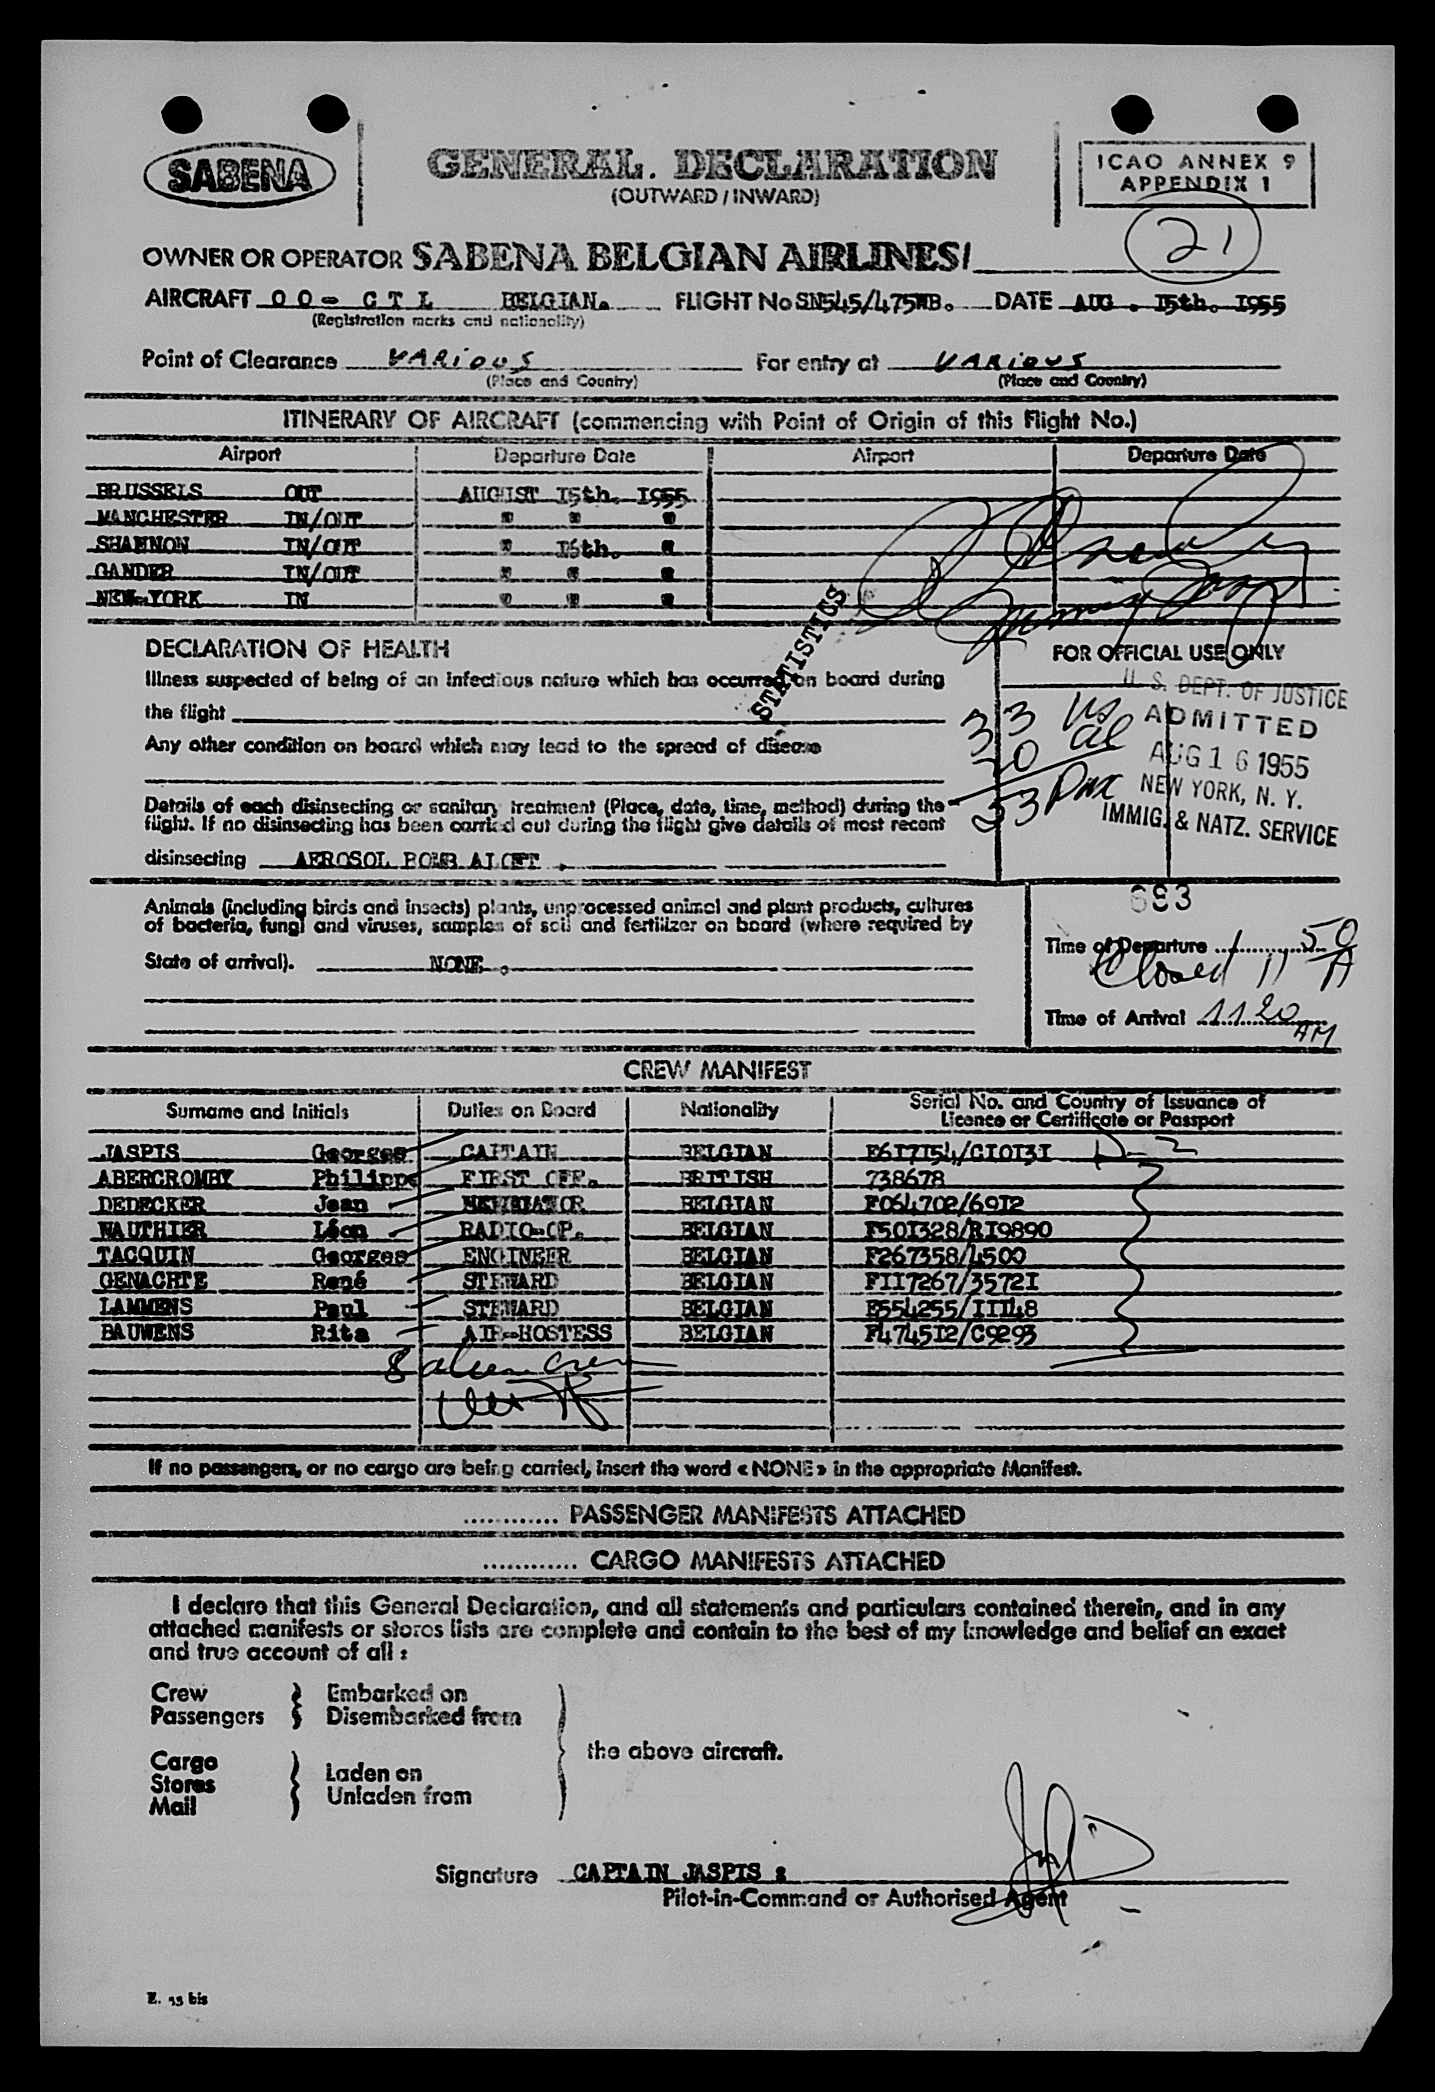 SABENA
GENERAL. DECLARATION
(OUTWARD / INWARD)
ICAO ANNEX 9
APPENDIX 1
21
OWNER OR OPERATOR SABENA BELGIAN AIRLINES
AIRCRAFT OO- CTL BELGIAN. FLIGHT No SN545/475WB. DATE AUG. I5th. I955
(Registration marks and nationality)
Point of Clearance VARIOUS For entry at VARIOUS
(Place and Country) (Place and Country)
ITINERARY OF AIRCRAFT (commencing with Point of Origin of this Flight No.)
Airport Departure Date Airport Departure Date
BRUSSELS OUT AUGUST I5th. I955
MANCHESTER IN/OUT " " "
SHANNON IN/OUT " I6th. "
GANDER IN/OUT " " "
NEW-YORK IN " " "
STATISTICS
DECLARATION OF HEALTH
Illness suspected of being of an infectious nature which has occurred on board during
the flight
Any other condition on board which may lead to the spread of disease
Details of each disinsecting or sanitary treatment (Place, date, time, method) during the
flight. If no disinsecting has been carried out during the flight give details of most recent
disinsecting AEROSOL BOMB ALOFT .
FOR OFFICIAL USE ONLY
U. S. DEPT. OF JUSTICE
ADMITTED
AUG 16 1955
NEW YORK, N. Y.
IMMIG. & NATZ. SERVICE
33 US
20 al
53 Pax
693
Animals (including birds and insects) plants, unprocessed animal and plant products, cultures
of bacteria, fungi and viruses, samples of soil and fertilizer on board (where required by
State of arrival). NONE .
Time of Departure
Closed 11 50 A
Time of Arrival 11.20 AM
CREW MANIFEST
Surname and Initials Duties on Board Nationality Serial No. and Country of Issuance of
Licence or Certificate or Passport
JASPIS Georges CAPTAIN BELGIAN E6I7I54/CI0I3I D-2
ABERCROMBY Philippe FIRST OFF. BRITISH 738678
DEDECKER Jean NAVIGATOR BELGIAN F064702/69I2
WAUTHIER Léon RADIO-OP. BELGIAN F50I328/RI9890
TACQUIN Georges ENGINEER BELGIAN F267358/4500
GENACHTE René STEWARD BELGIAN FII7267/3572I
LAMMENS Paul STEWARD BELGIAN E554255/III48
BAUWENS Rita AIR-HOSTESS BELGIAN F4745I2/C9293
8 alien crew
If no passengers, or no cargo are being carried, insert the word « NONE » in the appropriate Manifest.
............ PASSENGER MANIFESTS ATTACHED
............ CARGO MANIFESTS ATTACHED
I declare that this General Declaration, and all statements and particulars contained therein, and in any
attached manifests or stores lists are complete and contain to the best of my knowledge and belief an exact
and true account of all :
Crew Embarked on
Passengers Disembarked from
the above aircraft.
Cargo
Stores Laden on
Mail Unladen from
Signature CAPTAIN JASPIS :
Pilot-in-Command or Authorised Agent
E. 33 bis